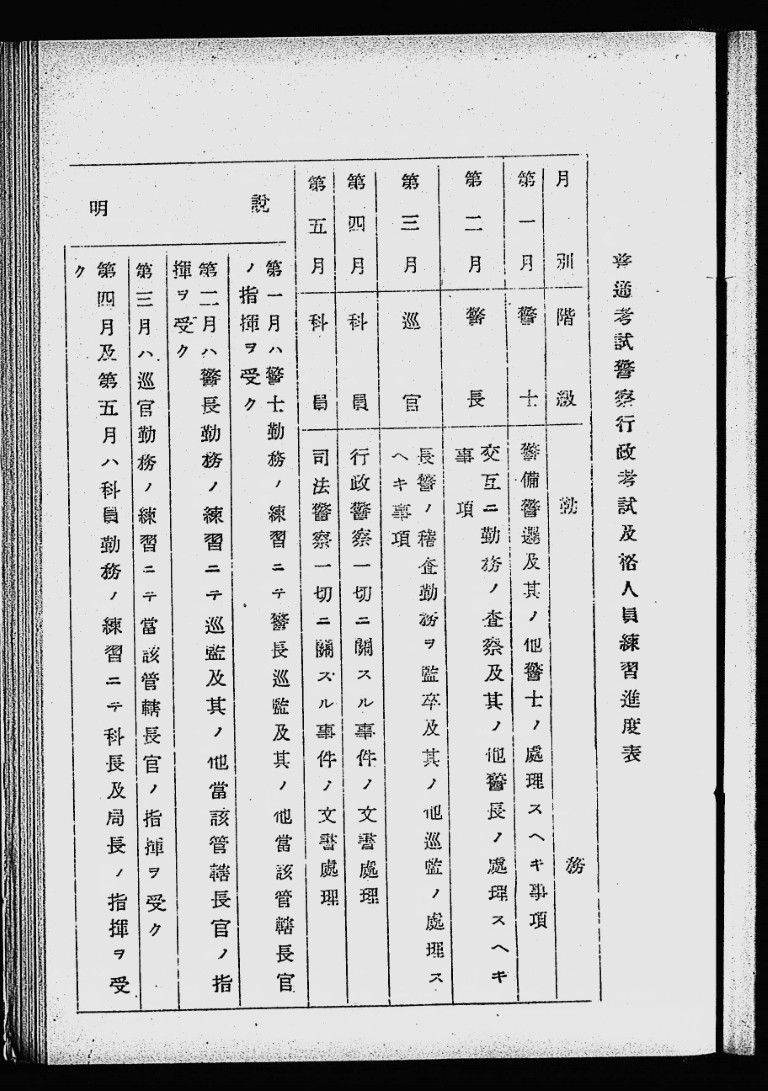 普通考試警察行政考試及格人員練習進度表
月別 階級 勤務
第一月 警士 警備警邏及其ノ他警士ノ處理スヘキ事項
第二月 警長 交互ニ勤務ノ査察及其ノ他警長ノ處理スヘキ
事項
第三月 巡官 長警ノ稽査勤務ヲ監卒及其ノ他巡監ノ處理ス
ヘキ事項
第四月 科員 行政警察一切ニ關スル事件ノ文書處理
第五月 科員 司法警察一切ニ關スル事件ノ文書處理
說明
第一月ハ警士勤務ノ練習ニテ警長巡監及其ノ他當該管轄長官
ノ指揮ヲ受ク
第二月ハ警長勤務ノ練習ニテ巡監及其ノ他當該管轄長官ノ指
揮ヲ受ク
第三月ハ巡官勤務ノ練習ニテ當該管轄長官ノ指揮ヲ受ク
第四月及第五月ハ科員勤務ノ練習ニテ科長及局長ノ指揮ヲ受
ク